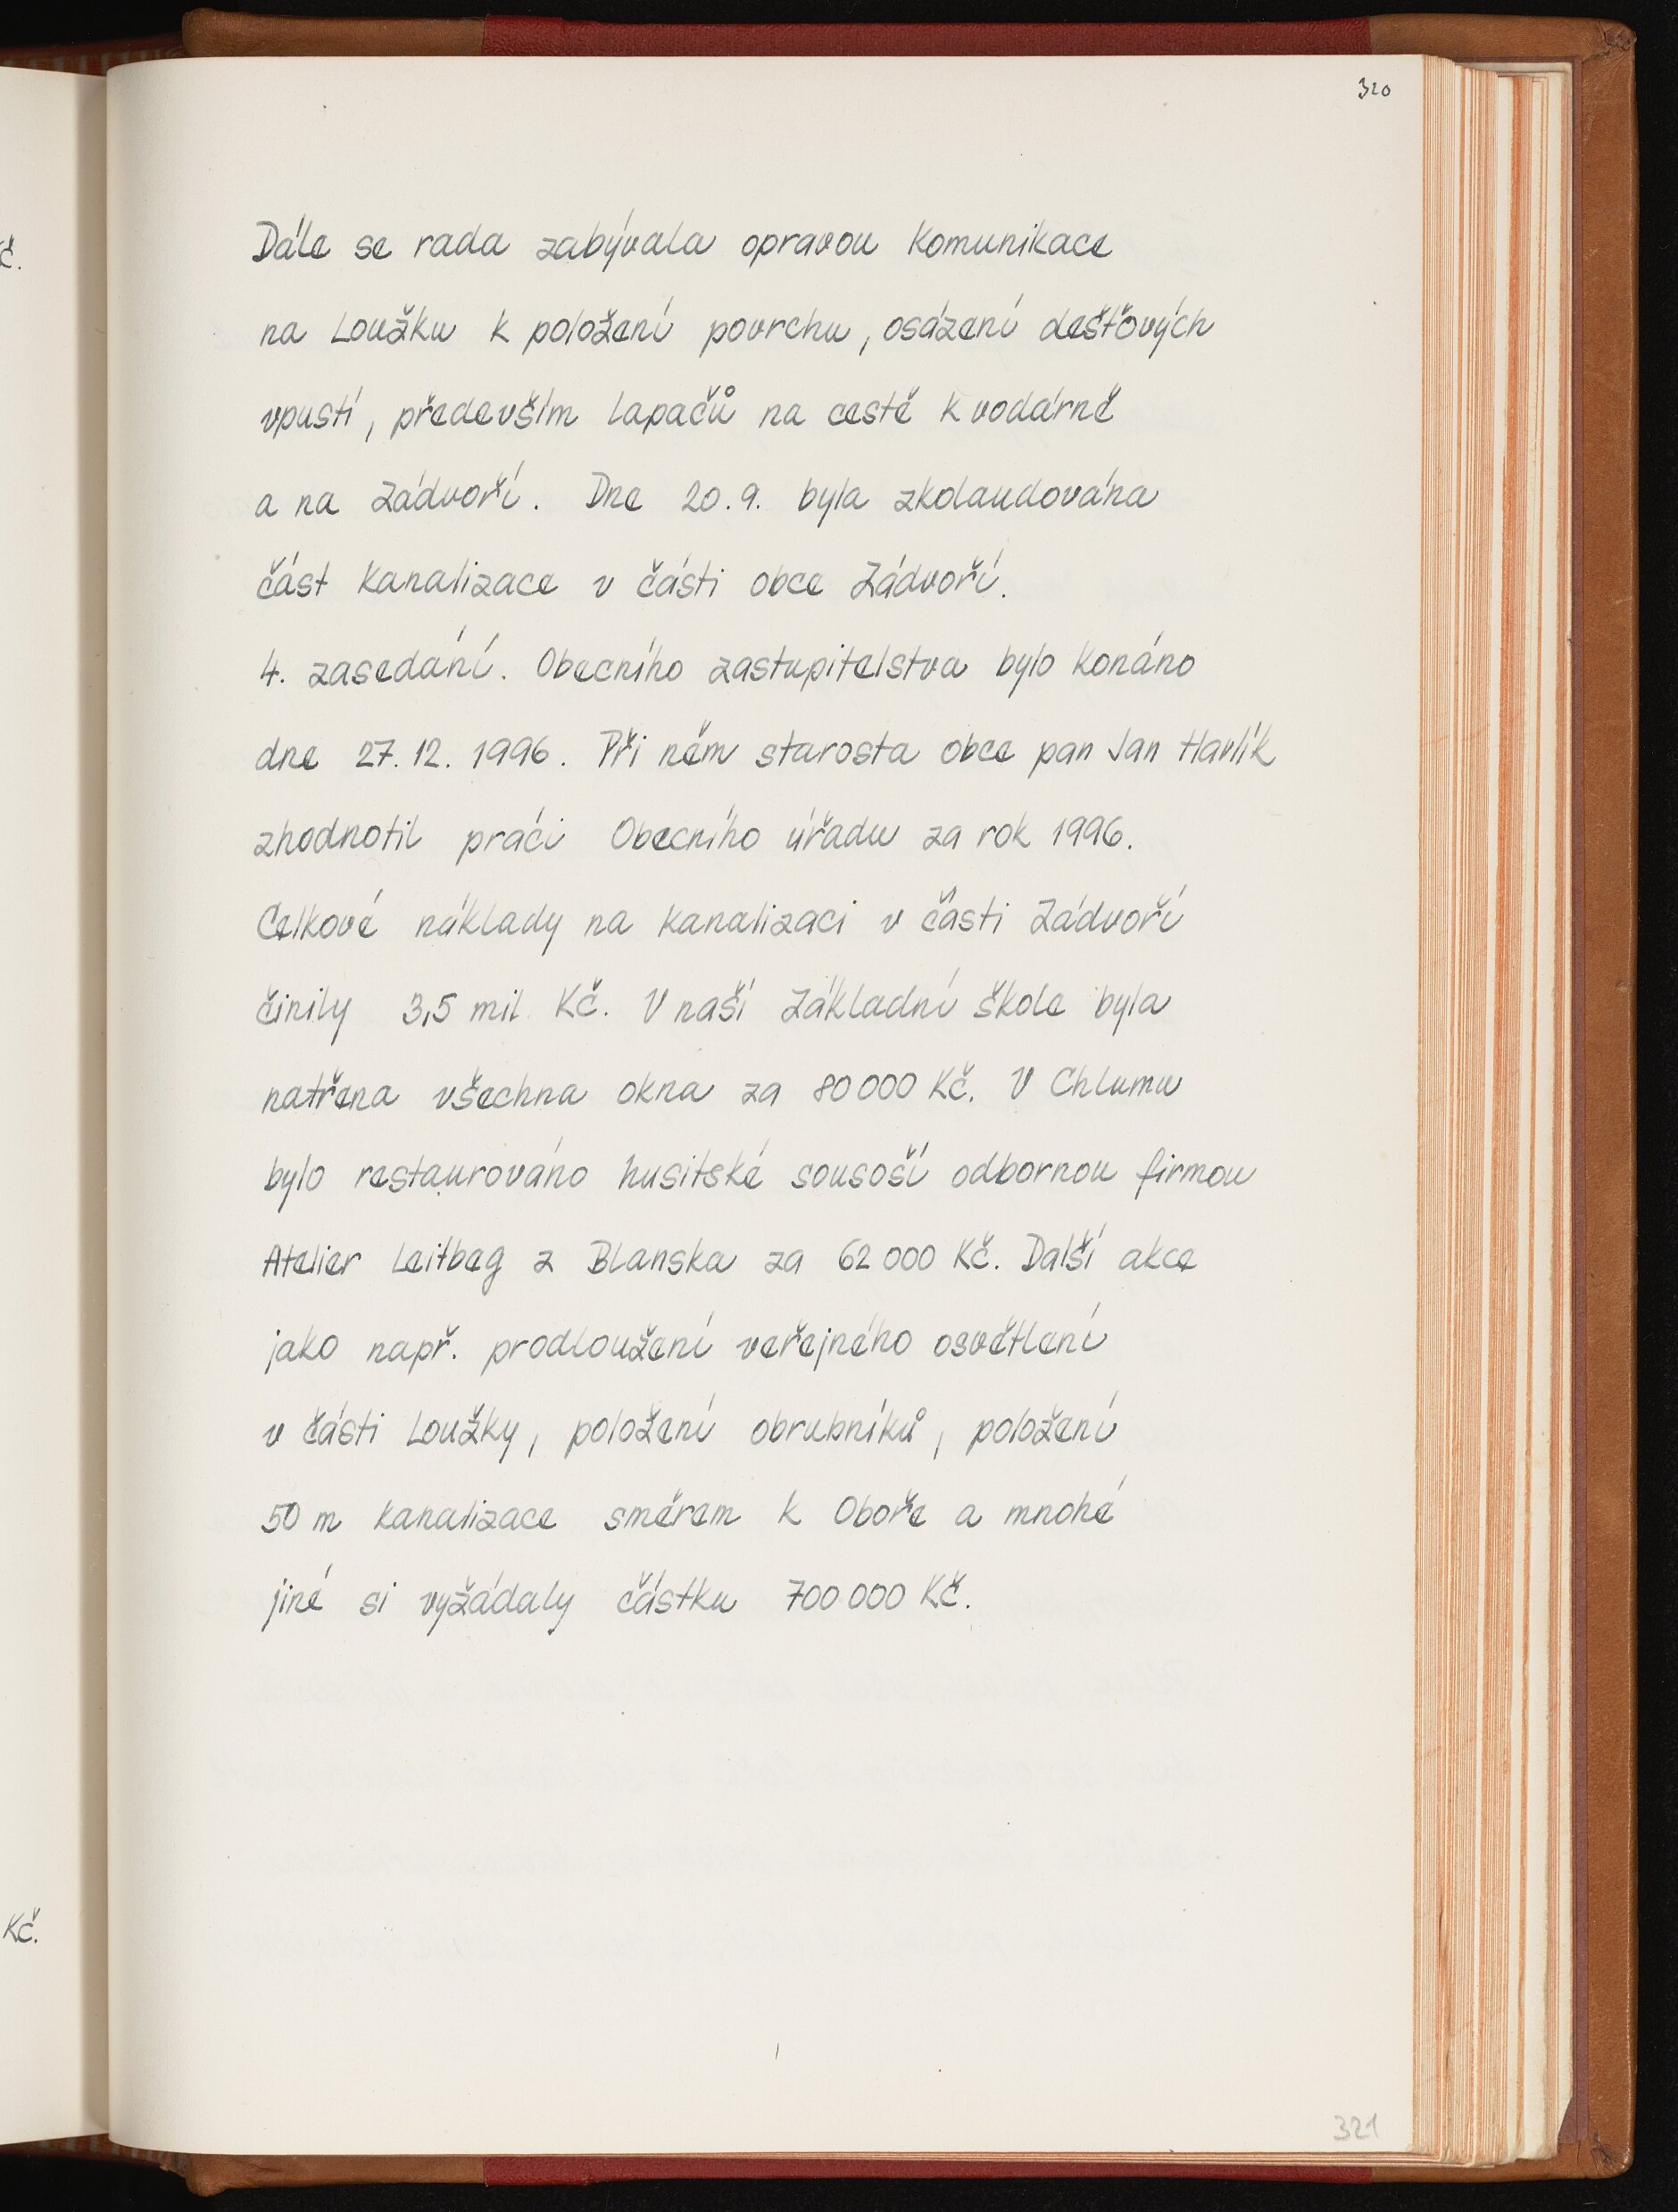 320
č.
Dále se rada zabývala opravou komunikace
na Loužku k položení povrchu, osázení dešťových
vpustí, především lapačů na cestě k vodárně
a na Zádvoří. Dne 20.9. byla zkolaudována
část kanalizace v části obce Zádvoří.
4. zasedání. Obecního zastupitelstva bylo konáno
dne 27.12. 1996. Při něm starosta obce pan Jan Havlík
zhodnotil práci Obecního úřadu za rok 1996.
Celkové náklady na kanalizaci v části Zádvoří
činily 3,5 mil. Kč. V naší Základní škole byla
natřena všechna okna za 80 000 Kč. V Chlumu
bylo restaurováno husitské sousoší odbornou firmou
Atelier Leitbeg z Blanska za 62 000 Kč. Další akce
jako např. prodloužení veřejného osvětlení
v části Loužky, položení obrubníků, položení
50 m kanalizace směrem k Oboře a mnohé
jiné si vyžádaly částku 700 000 Kč.
Kč.
321